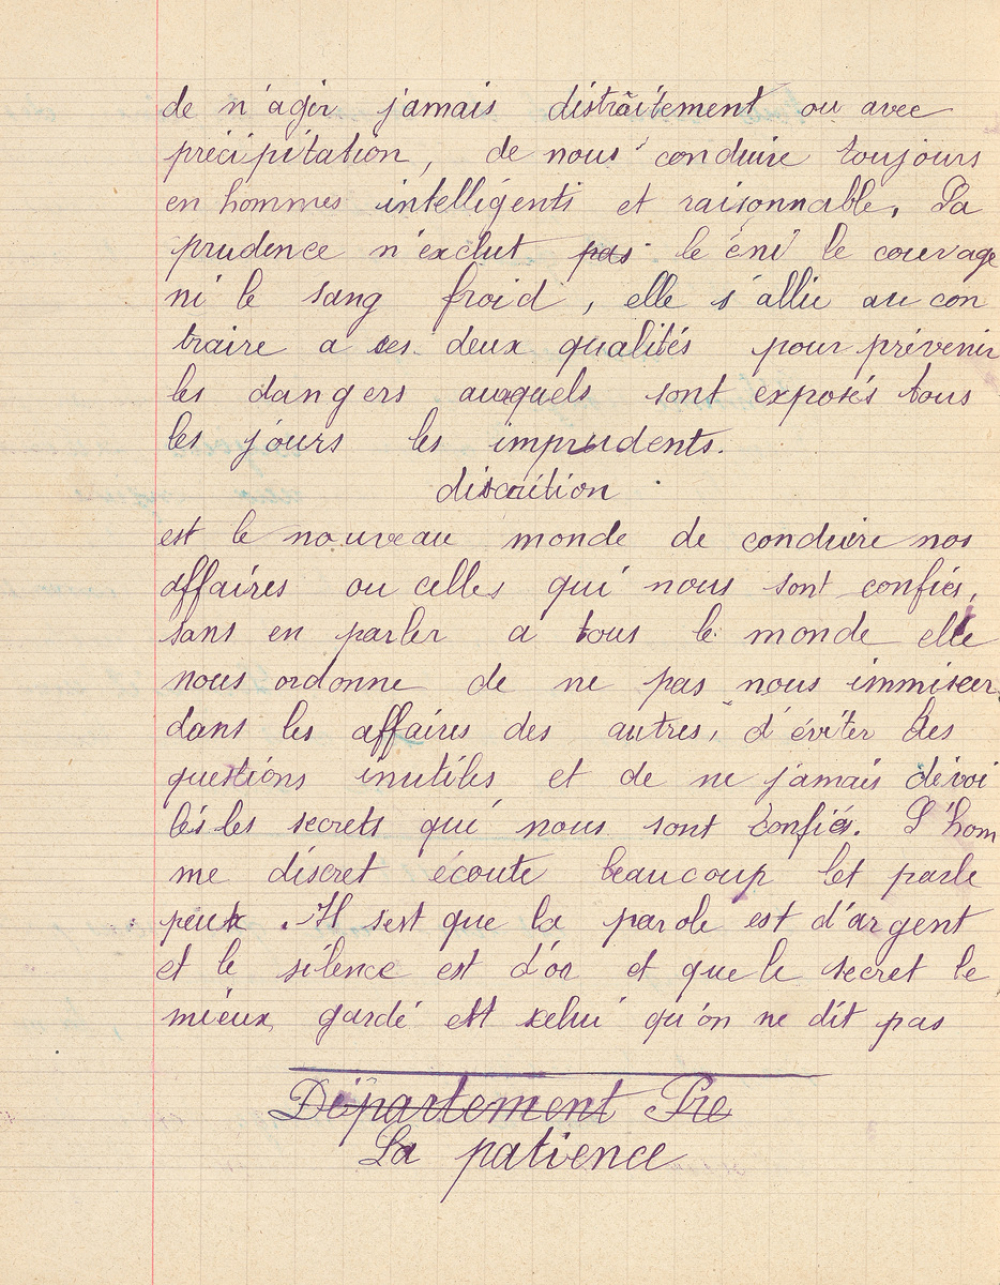 de n'agir jamais distraitement ou avec
précipitation, de nous conduire toujours
en hommes intelligents et raisonnable. La
prudence n'exclut pas le éni le couvage
ni le sang froid, elle s'allie au con
traire a ces deux qualités pour prévenir
les dangers auxquels sont exposés tous
les jours les imprudents.
discrition
est le nouveau monde de conduire nos
affaires ou celles qui nous sont confiés,
sans en parler a tous le monde elle
nous ordonne de ne pas nous immiscer
dans les affaires des autres, d'éviter les
questions inutiles et de ne jamais dévoi
lés les secrets qui nous sont confiés. L'hom
me discret écoute beaucoup let parle
peut. Il sest que la parole est d'argent
et le silence est d'or et que le secret le
mieux gardé est celui qu'on ne dit pas
Département Pre
La patience